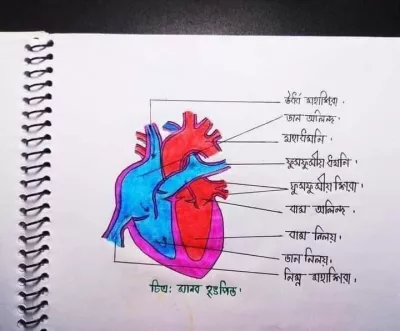 ঊর্ধ্ব মহাশিরা।
ডান অলিন্দ।
মহাধমনি।
ফুসফুসীয় ধমনি।
ফুসফুসীয় শিরা।
বাম অলিন্দ।
বাম নিলয়।
ডান নিলয়।
নিম্ন মহাশিরা।
চিত্র: মানব হৃদপিন্ড।